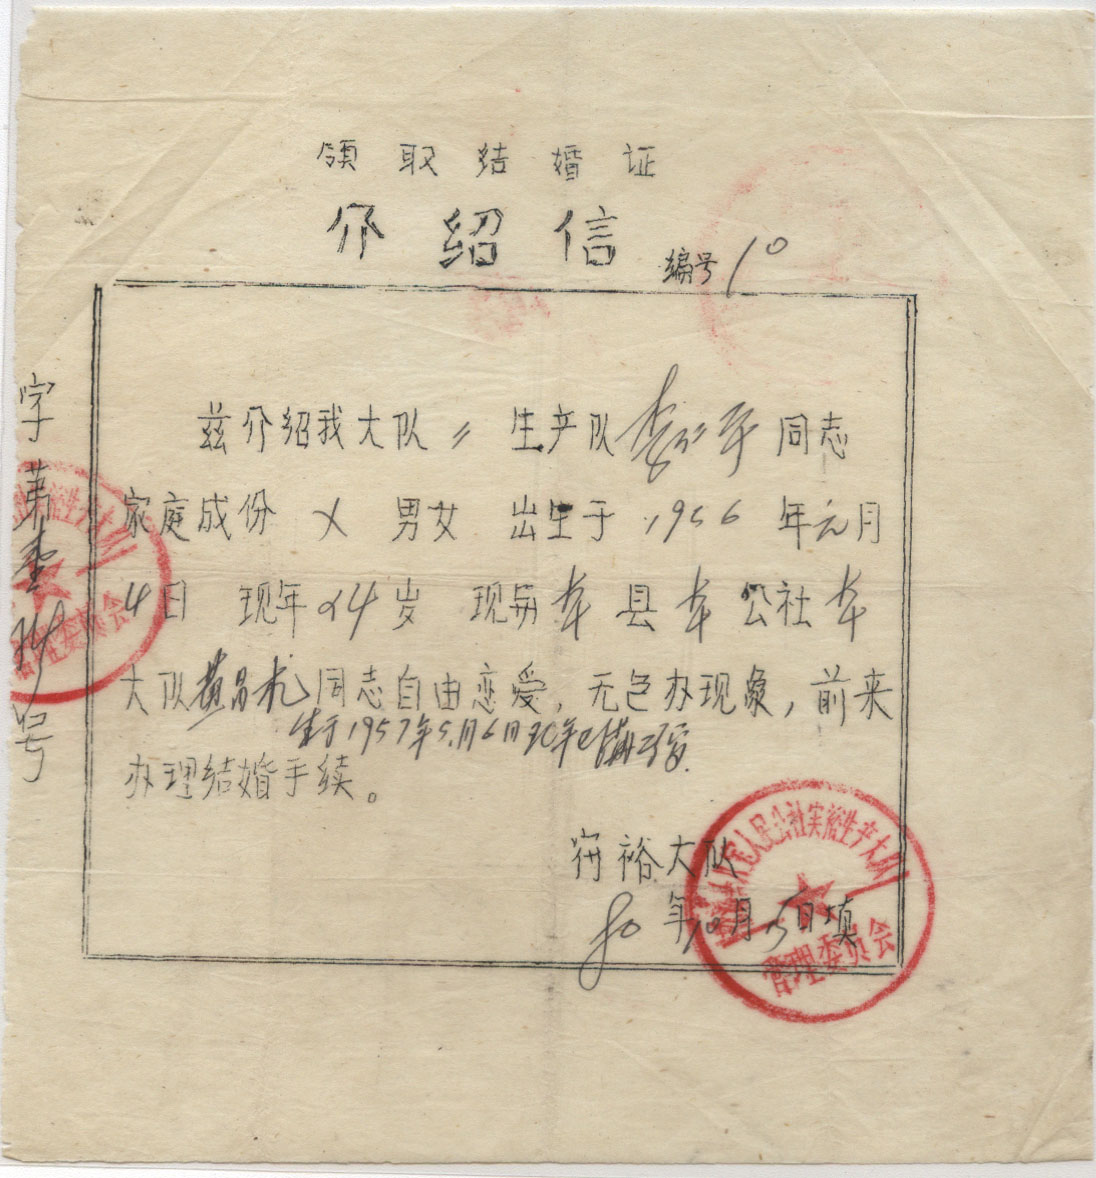 领取结婚证
介绍信
编号10
兹介绍我大队 生产队李 平同志
家庭成份 男女 出生于1956年元月
4日 现年24岁 现与本县本公社本
大队黄昌 同志自由恋爱,无包办现象,前来
生于1957年5月6日
办理结婚手续。
裕大队
80年10月5日填
字第 号
人民公社实裕生产大队
管理委员会
管理委员会